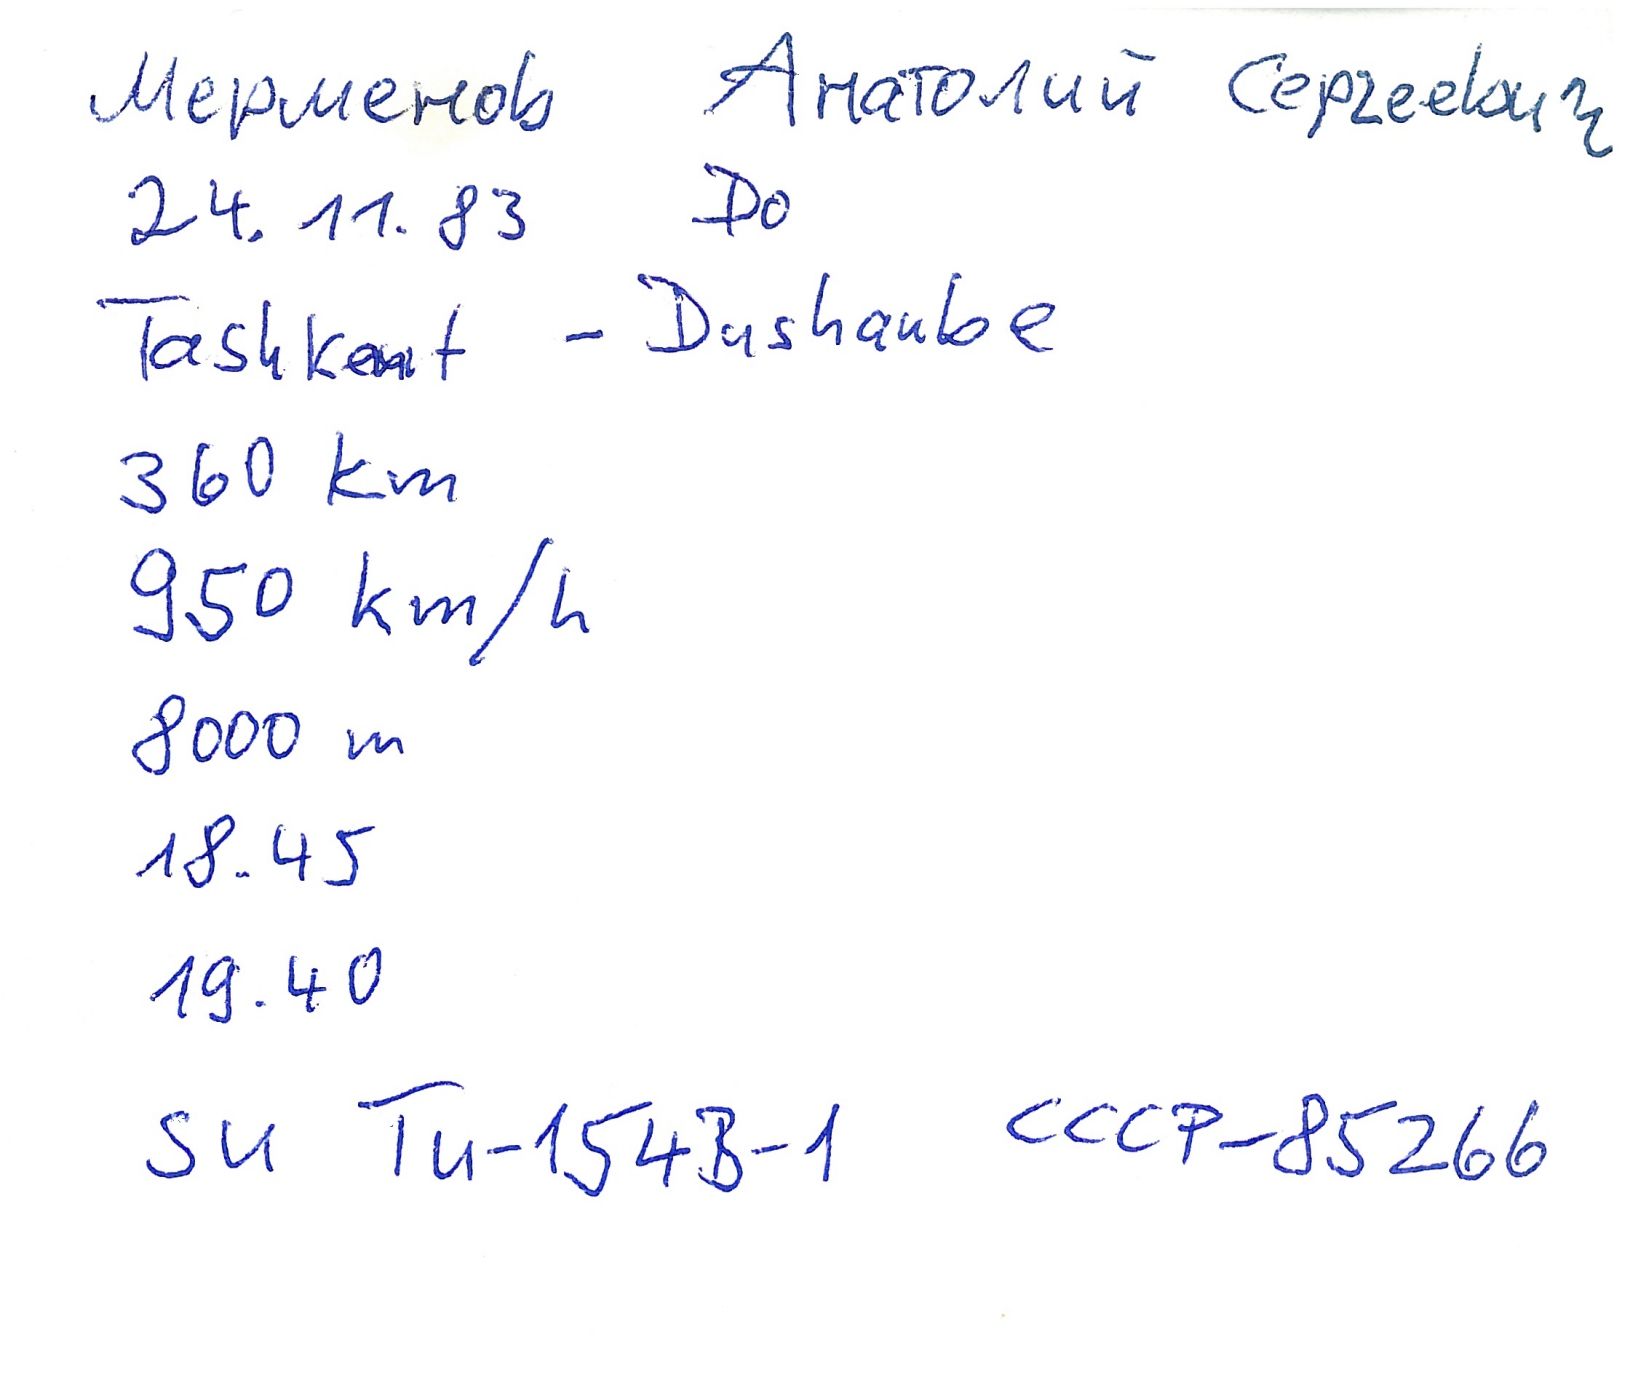 Мерменов Анатолий Сергеевич
24.11.83 Do
Tashkent - Dushanbe
360 km
950 km/h
8000 m
18.45
19.40
SU Tu-154B-1 CCCP-85266